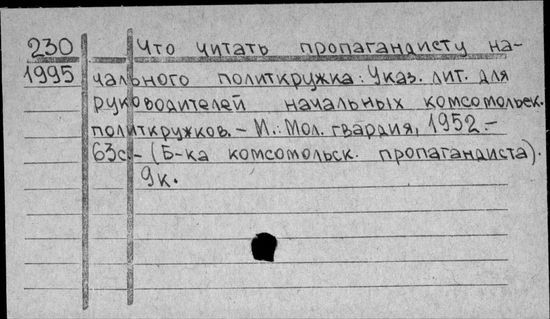 230 Что читать пропагандисту на-
1995 чального политкружка: Указ. лит. для
руководителей начальных комсомольск.
политкружков. – М.: Мол. гвардия, 1952. –
63с. – (Б-ка комсомольск. пропагандиста).
9к.